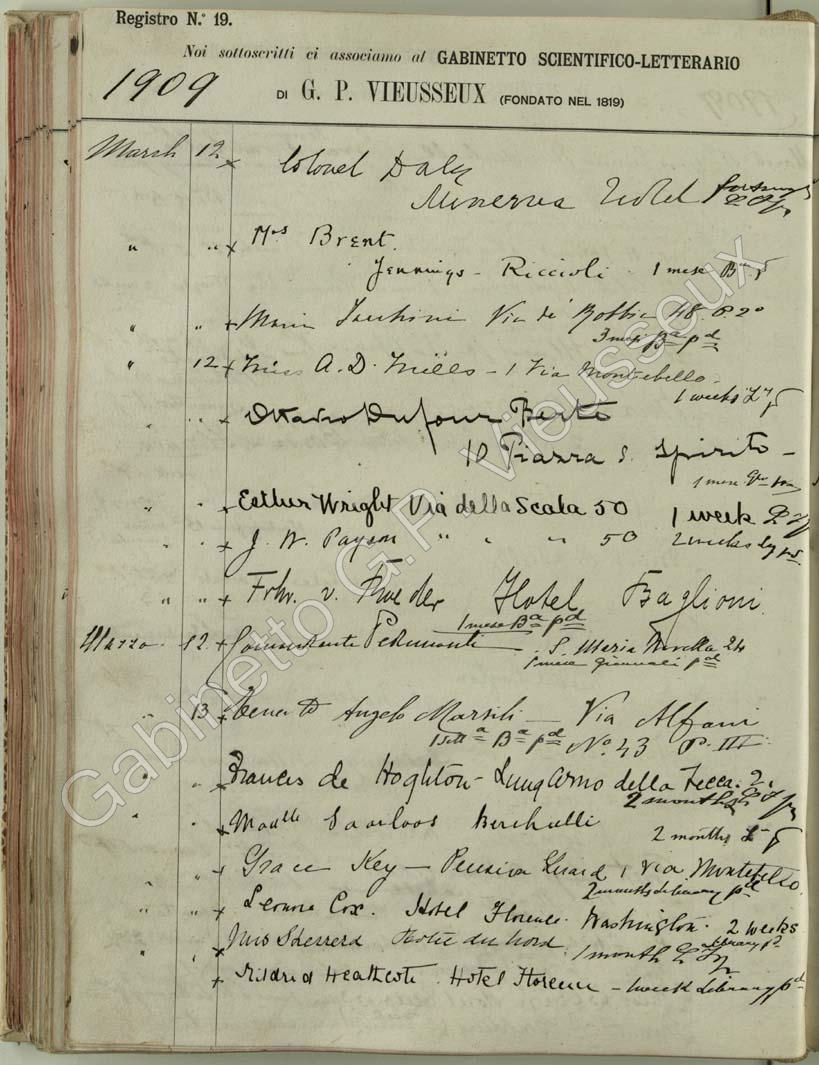 Registro N.° 19.
Noi sottoscritti ci associamo al GABINETTO SCIENTIFICO-LETTERARIO
1909 DI G. P. VIEUSSEUX (FONDATO NEL 1819)
March 12 x Colonel Daly
Minerva Hotel
" " x Mrs Brent.
Jennings - Riccioli - 1 mese Bca
" " x Maria Via de' 48. P. 2°
3 mesi Ba pd
" 12 x Miss A. D. Mills - 1 Via Montebello -
1 weeks
" " x Ottavio Dufour Berte
10 Piazza S. Spirito -
1 mese
" " x Esther Wright Via della Scala 50 1 week
" " x J. W. Payson " " " 50 2 weeks
" " x Frhr. v. Hotel Baglioni
1 mese Ba pd
Marzo 12 x Comandante S. Maria Novella 24
1 mese Giornali pd
" 13 x Angelo Marsili — Via Alfani
1 Setta Ba pd No. 43 P. III
" " x Frances de Hoghton - Lung Arno della Zecca. 2.
2 months
" " x Madlle Saarloos Berchielli
2 months
" " x Grace Key — Pension 1 Via Montebello.
2 months library pd
" " x Leonora Cox. Hotel Florence - Washington. 2 weeks
library pd
" " x Miss Sherrerd Hotel du Nord. 1 month
x Mildred Heathcote. Hotel Florence - 1 week Library pd
Gabinetto G.P. Vieusseux